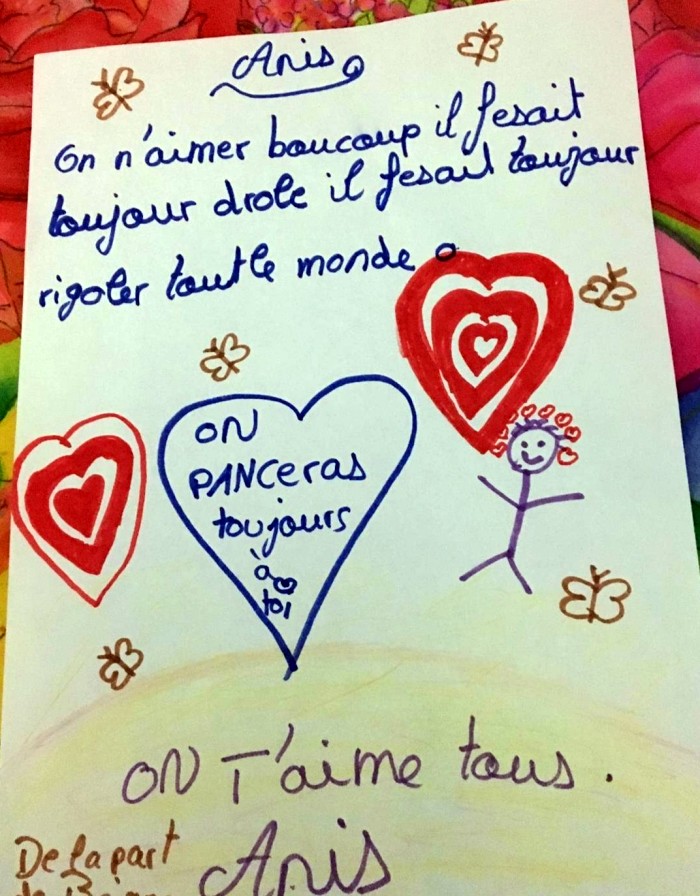 Anis
On n'aimer baucoup il fesait
toujour drole il fesait toujour
rigoler tout le monde
ON
PANCeras
toujours
à
toi
ON T'aime tous.
De la part
Anis